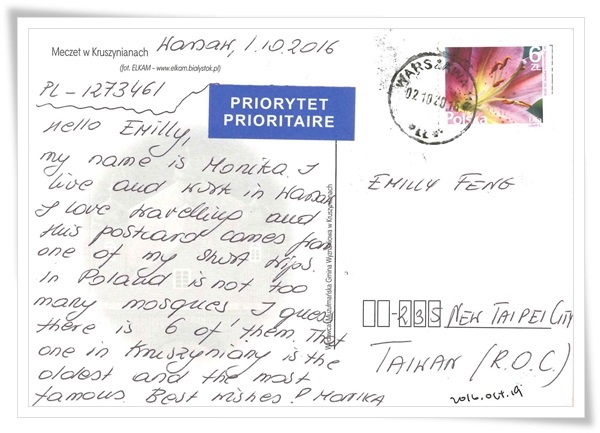 Meczet w Kruszynianach
(fot. ELKAM – www.elkam.bialystok.pl)
Warsaw, 1.10.2016
PL-1273461
PRIORYTET
PRIORITAIRE
WARSZAWA
02 10 2016
6
ZŁ
Polska
Hello EMILLY,
my name is Monika. I
live and work in Warsaw
I love travelling and
this postcard comes from
one of my short trips.
In Poland is not too
many mosques I guess
there is 6 of them. That
one in Kruszyniany is the
oldest and the most
famous. Best wishes! MONIKA
Gmina Wyznaniowa w Kruszynianach
EMILLY FENG
-235 NEW TAIPEI CITY
TAIWAN (R.O.C.)
2016.Oct.19